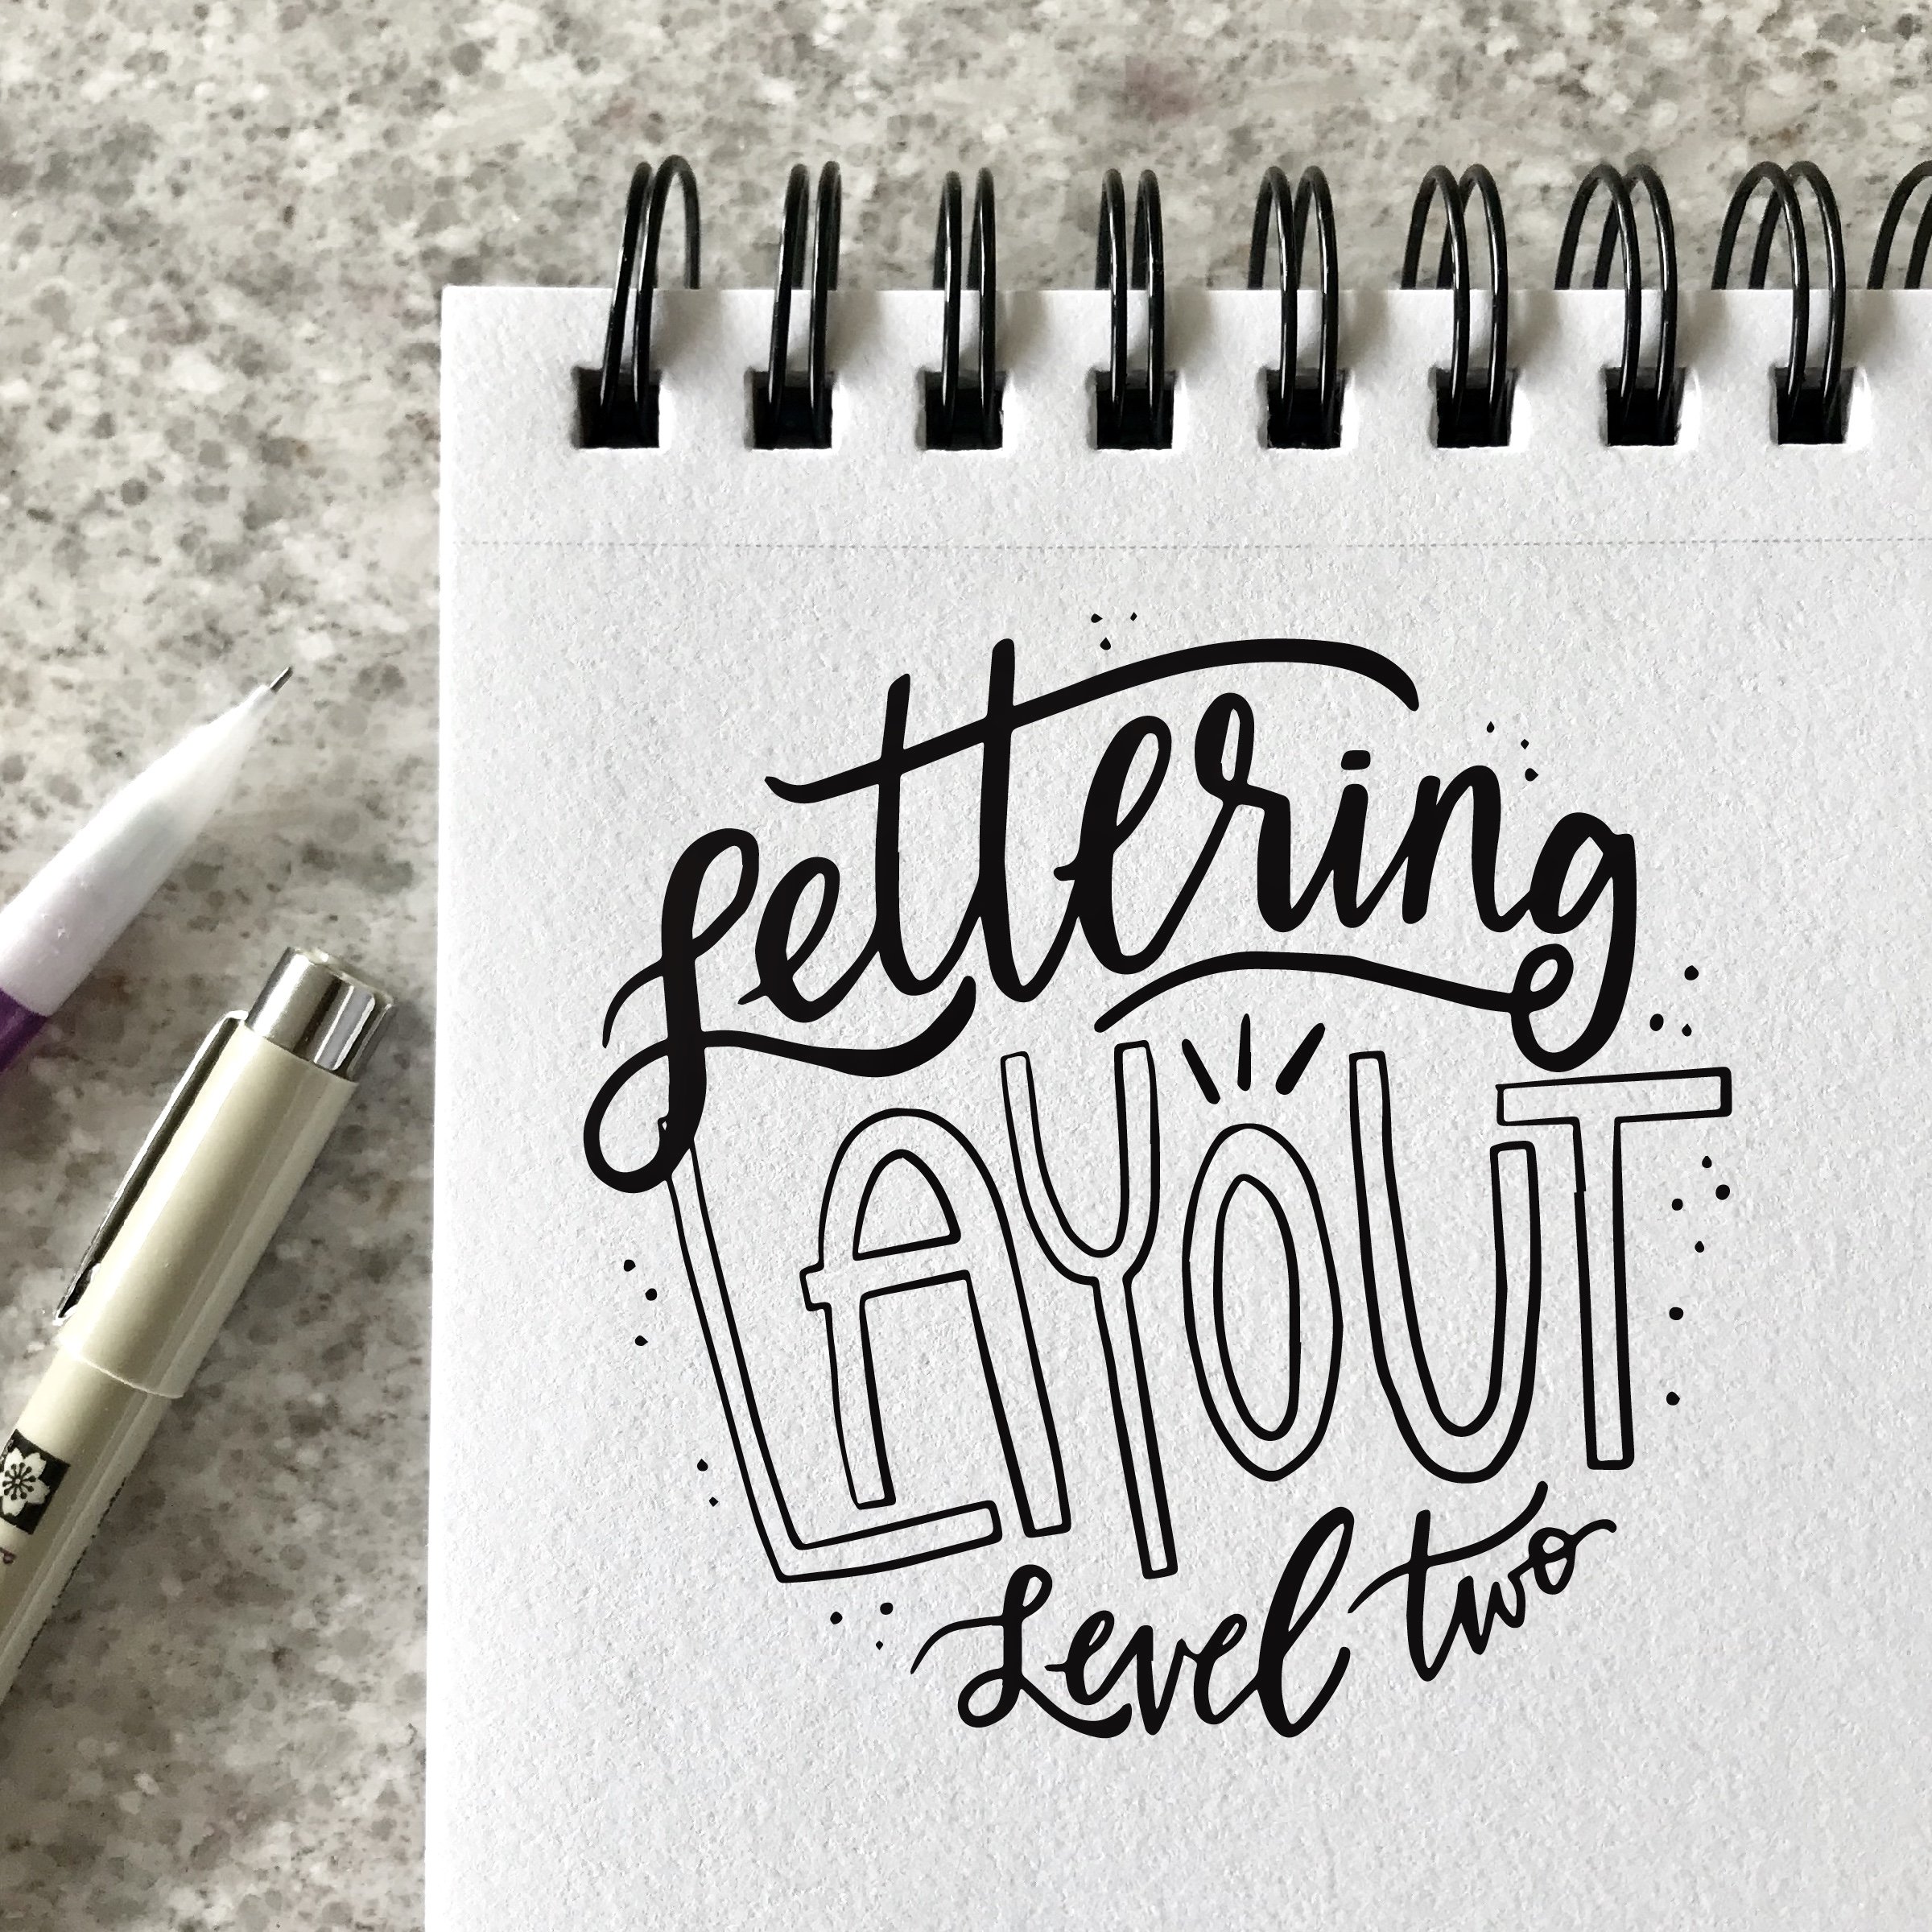 Lettering
LAYOUT
Level two